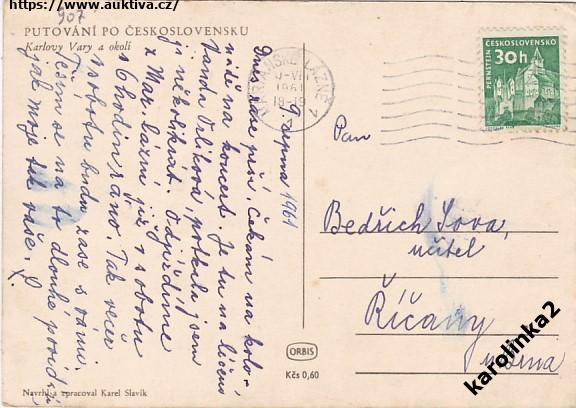 https://www.auktiva.cz/
907
PUTOVÁNÍ PO ČESKOSLOVENSKU
Karlovy Vary a okolí
9 srpna 1961
Dnes zase prší. Čekám na kolo-
nádě na koncert. Je tu na léčení
Vanda Orlíková, potkala jsem
ji několikrát. Odjíždíme
z Mar. Lázní již v sobotu
v 6 hodin ráno. Tak večer
v sobotu budu zase s vámi.
Těším se na to dlouhé povídání
jak moje tak vaše.
MARIÁNSKÉ LÁZNĚ
1961
18-19
ČESKOSLOVENSKO
PERNŠTEJN
30h
Pan
Bedřich Sova,
učitel
Říčany
u Brna
ORBIS
Kčs 0,60
Navrhl a zpracoval Karel Slavík
karolinka2